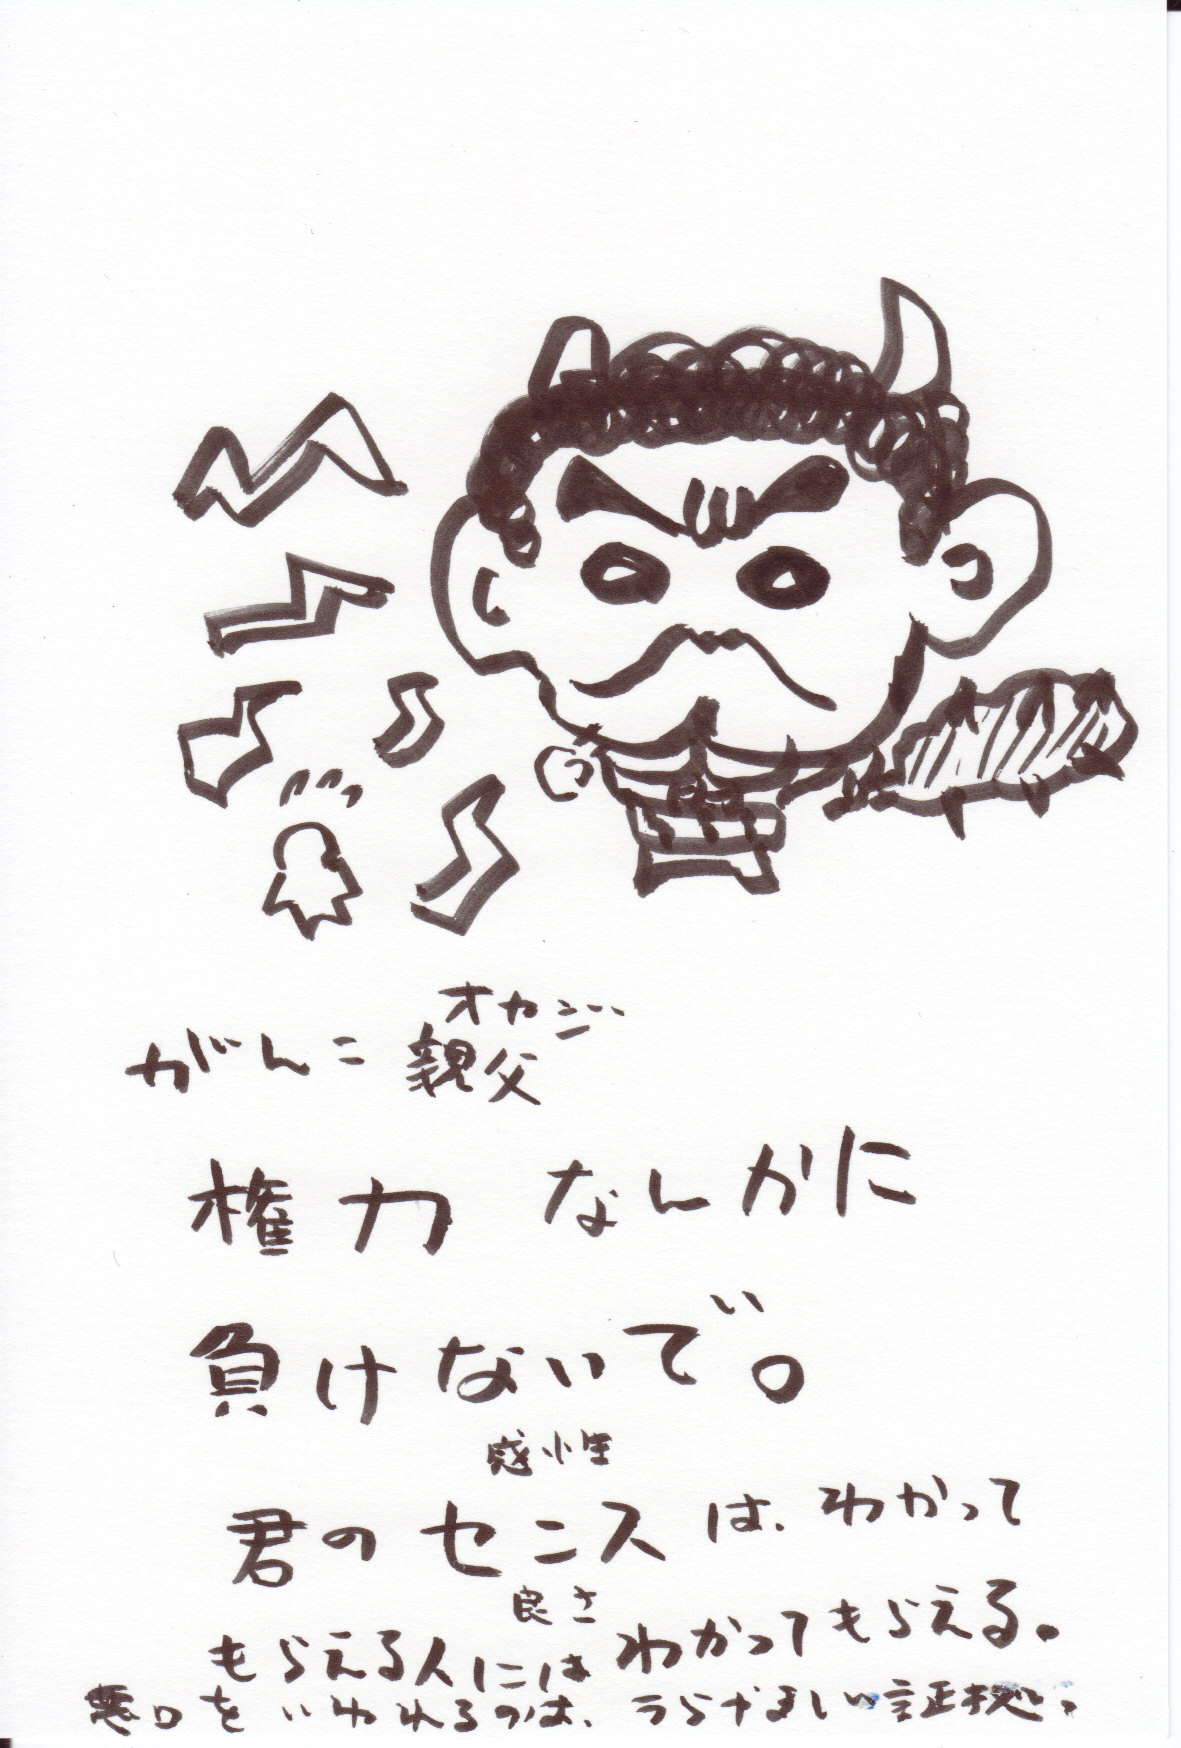 オヤジ
がんこ親父
権力 なんかに
負けないで。
感性
君のセンスは、わかって
良さ
もらえる人にはわかってもらえる。
悪口をいわれるのは、うらやましい証拠。